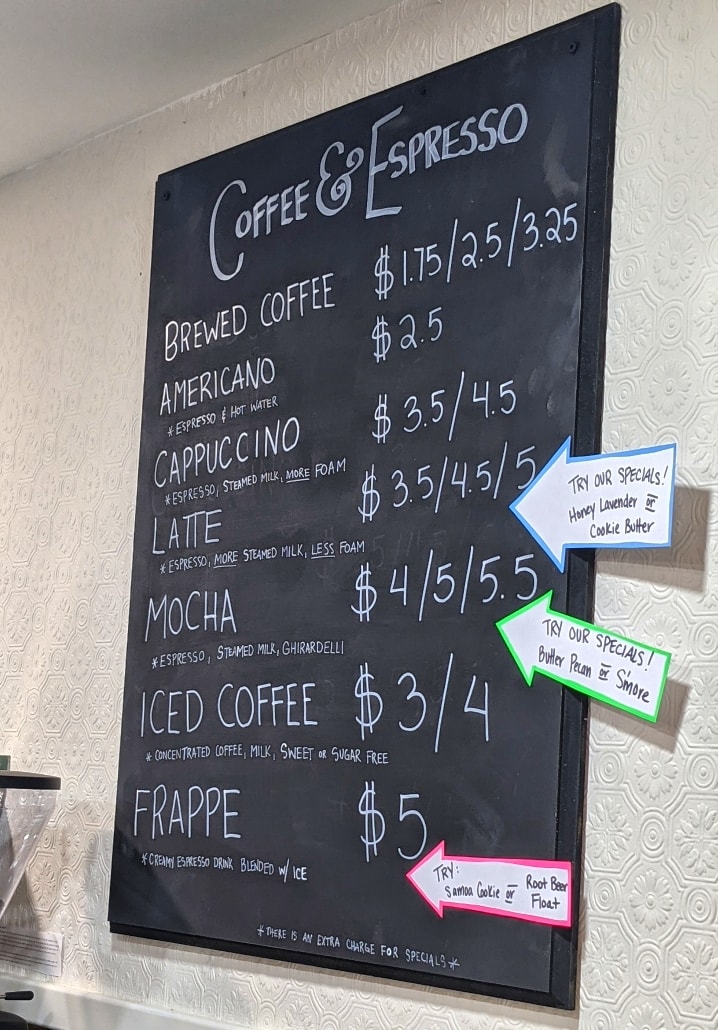 COFFEE & ESPRESSO
BREWED COFFEE $1.75/2.5/3.25
AMERICANO $2.5
*ESPRESSO & HOT WATER
CAPPUCCINO $3.5/4.5
*ESPRESSO, STEAMED MILK, MORE FOAM
LATTE $3.5/4.5/5
*ESPRESSO, MORE STEAMED MILK, LESS FOAM
TRY OUR SPECIALS!
Honey Lavender or
Cookie Butter
MOCHA $4/5/5.5
*ESPRESSO, STEAMED MILK, GHIRARDELLI
TRY OUR SPECIALS!
Butter Pecan or S'more
ICED COFFEE $3/4
*CONCENTRATED COFFEE, MILK, SWEET OR SUGAR FREE
FRAPPE $5
*CREAMY ESPRESSO DRINK BLENDED W/ ICE
TRY:
Samoa Cookie or Root Beer
Float
*THERE IS AN EXTRA CHARGE FOR SPECIALS*